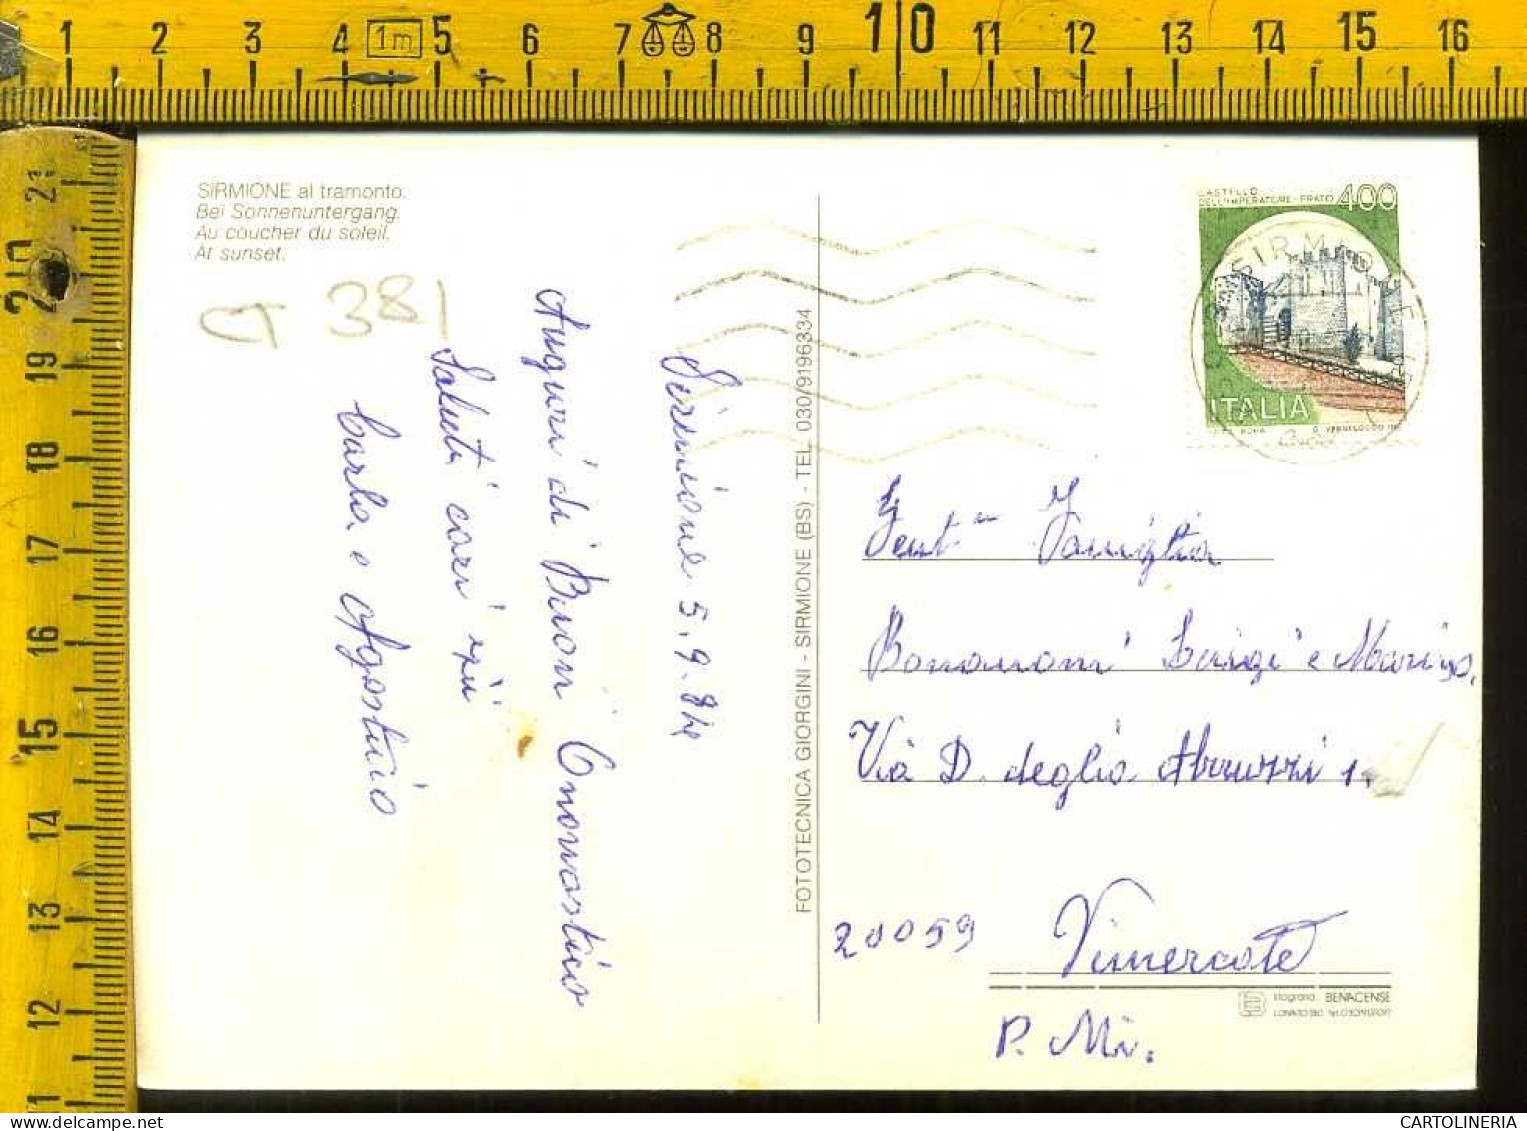 1 2 3 4 1m 5 6 7 8 9 10 11 12 13 14 15 16
21
20
19
18
17
16
15
14
13
12
11
SIRMIONE al tramonto.
Bei Sonnenuntergang.
Au coucher du soleil.
At sunset.
CT 381
Sirmione 5.9.84
Auguri di Buon Onomastico
Saluti cari
Carla e Agostino
FOTOTECNICA GIORGINI - SIRMIONE (BS) - TEL. 030/9196334
CASTELLO
DELL'IMPERATORE - PRATO 400
ITALIA
SIRMIONE
Gent.ma Famiglia
Bonanomi Luigi e Marisa
Via D. degli Abruzzi 1
20059 Vimercate
P. Mi.
BENACENSE
CARTOLINERIA